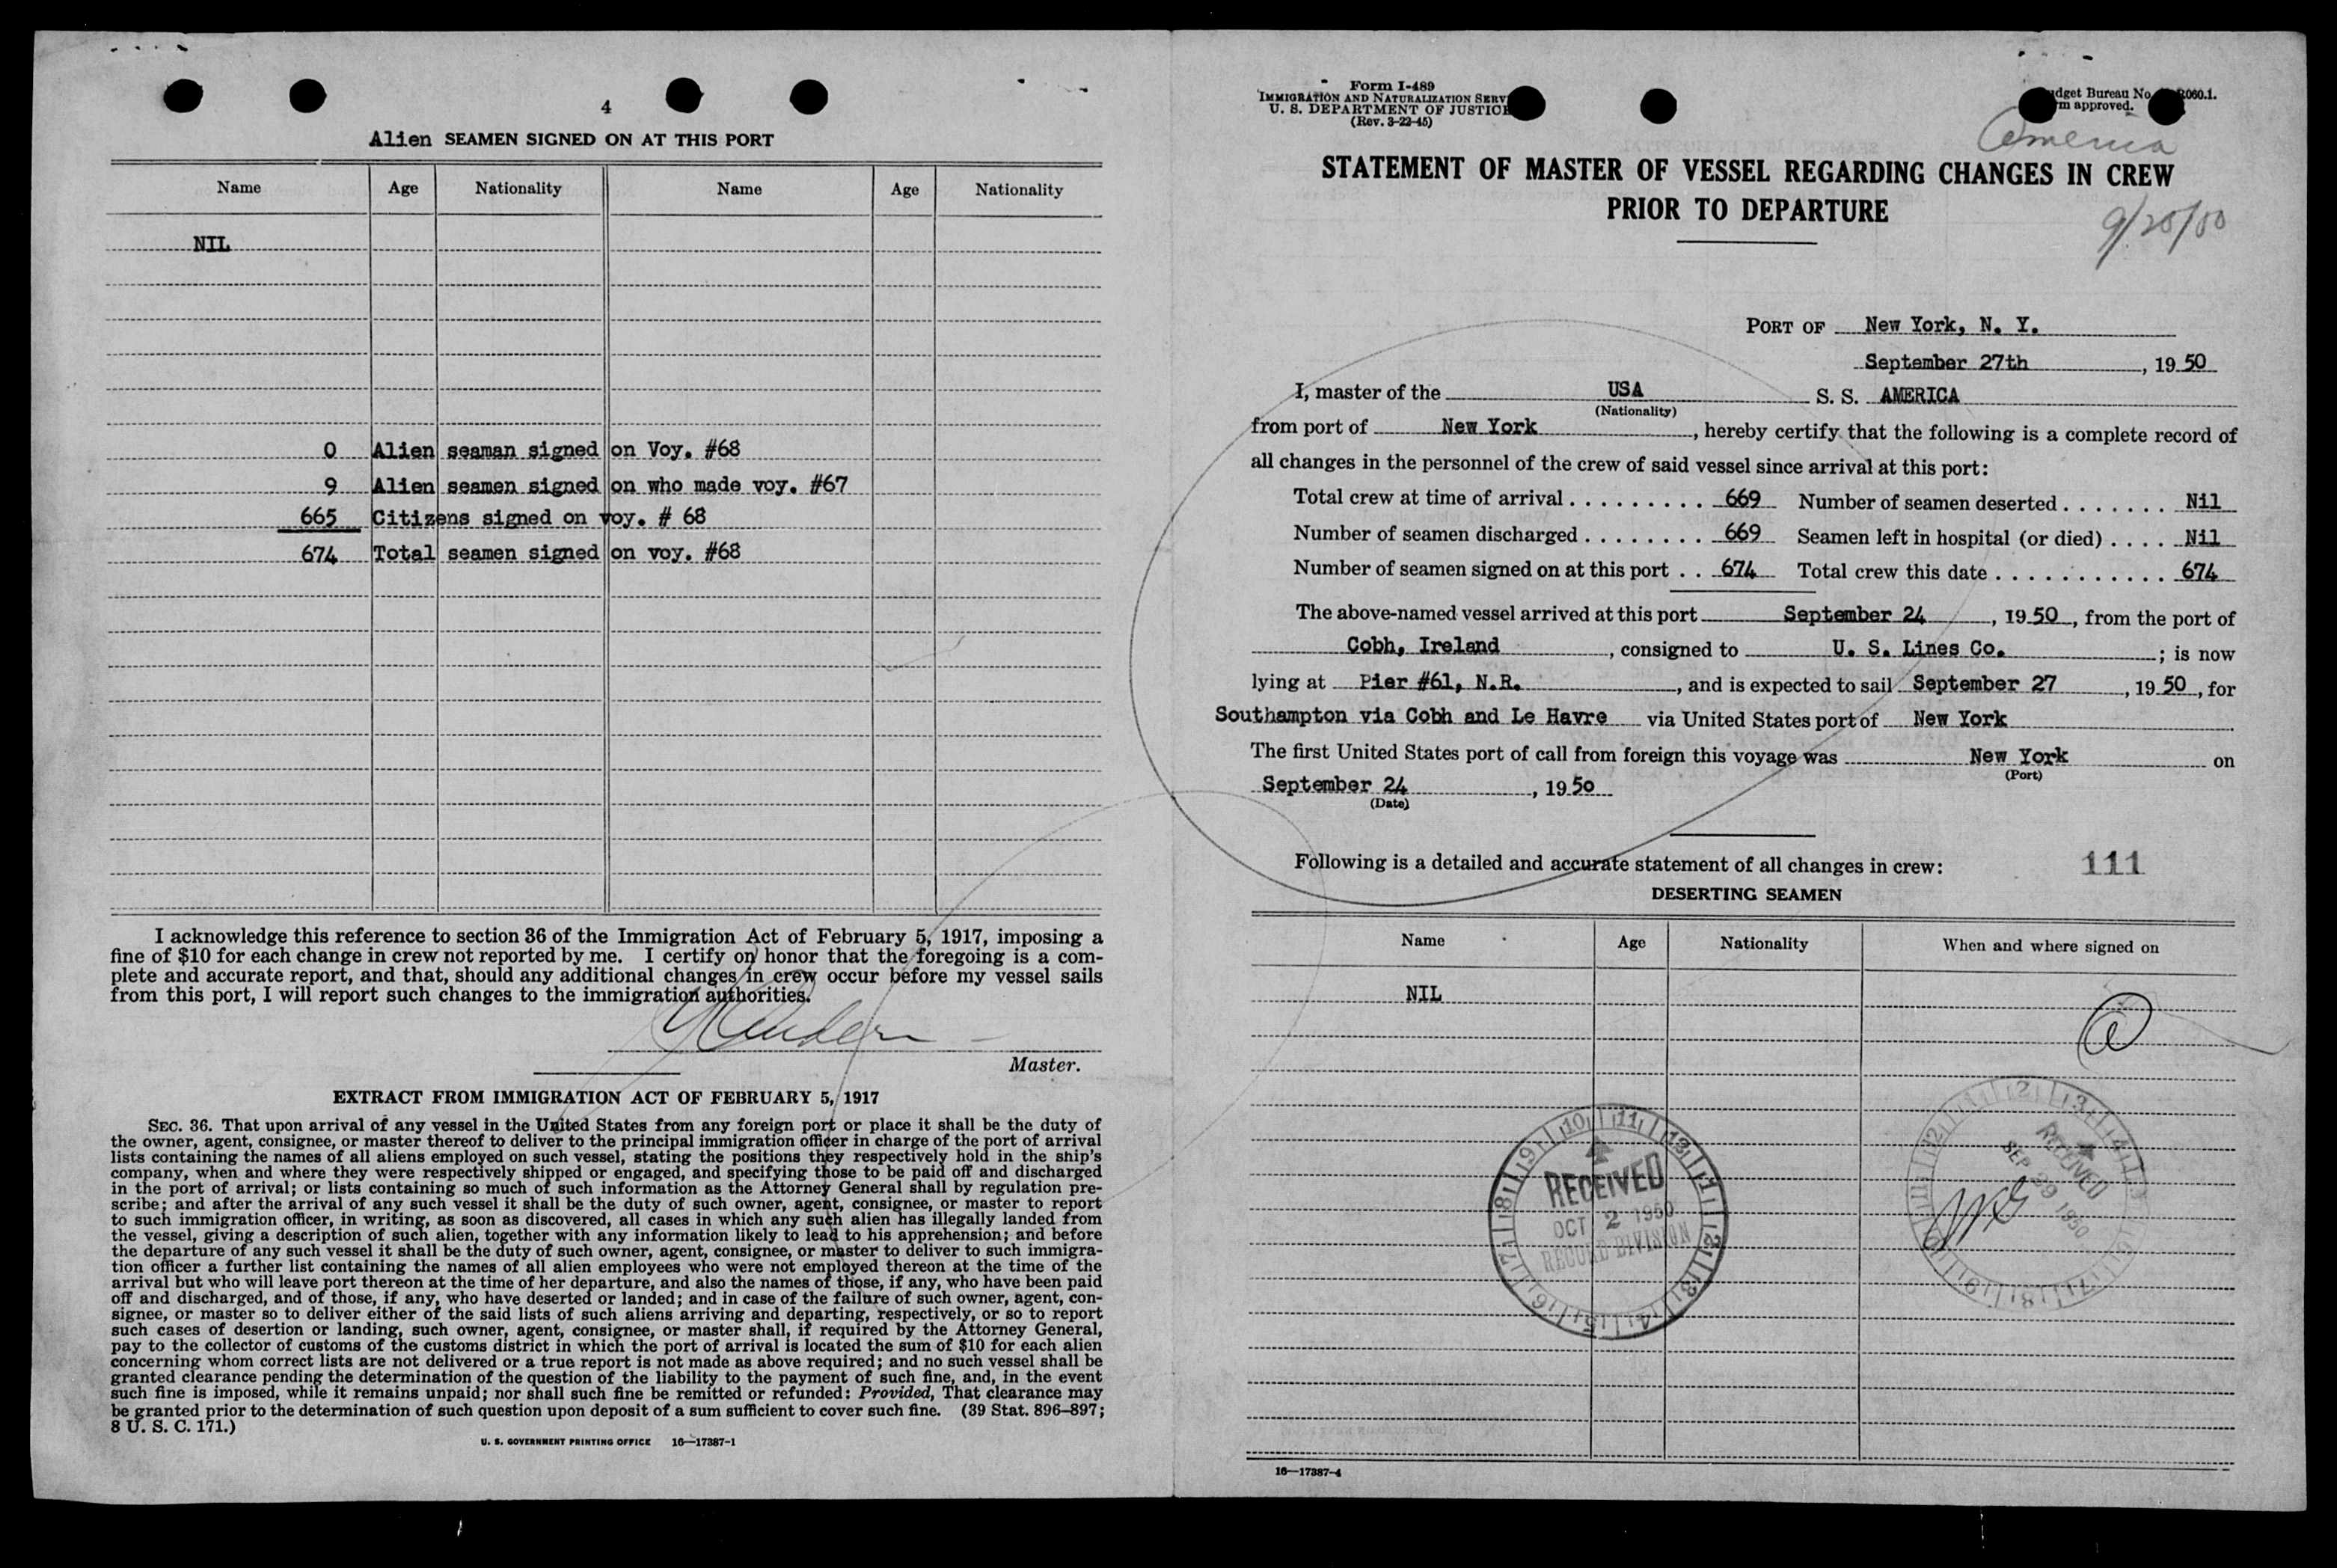 4
Alien SEAMEN SIGNED ON AT THIS PORT
Name Age Nationality Name Age Nationality
NIL
0 Alien seaman signed on Voy. #68
9 Alien seamen signed on who made voy. #67
665 Citizens signed on voy. # 68
674 Total seamen signed on voy. #68
I acknowledge this reference to section 36 of the Immigration Act of February 5, 1917, imposing a
fine of $10 for each change in crew not reported by me. I certify on honor that the foregoing is a com-
plete and accurate report, and that, should any additional changes in crew occur before my vessel sails
from this port, I will report such changes to the immigration authorities.
Master.
EXTRACT FROM IMMIGRATION ACT OF FEBRUARY 5, 1917
SEC. 36. That upon arrival of any vessel in the United States from any foreign port or place it shall be the duty of
the owner, agent, consignee, or master thereof to deliver to the principal immigration officer in charge of the port of arrival
lists containing the names of all aliens employed on such vessel, stating the positions they respectively hold in the ship's
company, when and where they were respectively shipped or engaged, and specifying those to be paid off and discharged
in the port of arrival; or lists containing so much of such information as the Attorney General shall by regulation pre-
scribe; and after the arrival of any such vessel it shall be the duty of such owner, agent, consignee, or master to report
to such immigration officer, in writing, as soon as discovered, all cases in which any such alien has illegally landed from
the vessel, giving a description of such alien, together with any information likely to lead to his apprehension; and before
the departure of any such vessel it shall be the duty of such owner, agent, consignee, or master to deliver to such immigra-
tion officer a further list containing the names of all alien employees who were not employed thereon at the time of the
arrival but who will leave port thereon at the time of her departure, and also the names of those, if any, who have been paid
off and discharged, and of those, if any, who have deserted or landed; and in case of the failure of such owner, agent, con-
signee, or master so to deliver either of the said lists of such aliens arriving and departing, respectively, or so to report
such cases of desertion or landing, such owner, agent, consignee, or master shall, if required by the Attorney General,
pay to the collector of customs of the customs district in which the port of arrival is located the sum of $10 for each alien
concerning whom correct lists are not delivered or a true report is not made as above required; and no such vessel shall be
granted clearance pending the determination of the question of the liability to the payment of such fine, and, in the event
such fine is imposed, while it remains unpaid; nor shall such fine be remitted or refunded: Provided, That clearance may
be granted prior to the determination of such question upon deposit of a sum sufficient to cover such fine. (39 Stat. 896–897;
8 U. S. C. 171.)
U. S. GOVERNMENT PRINTING OFFICE 16—17387-1
Form I-489
IMMIGRATION AND NATURALIZATION SERV
U. S. DEPARTMENT OF JUSTICE
(Rev. 3-22-45)
dget Bureau No. R060.1.
m approved.
America
STATEMENT OF MASTER OF VESSEL REGARDING CHANGES IN CREW
PRIOR TO DEPARTURE
PORT OF New York, N. Y.
September 27th, 1950
I, master of the USA S. S. AMERICA
(Nationality)
from port of New York, hereby certify that the following is a complete record of
all changes in the personnel of the crew of said vessel since arrival at this port:
Total crew at time of arrival . . . . . . . . . 669 Number of seamen deserted . . . . . . . Nil
Number of seamen discharged . . . . . . . . 669 Seamen left in hospital (or died) . . . . Nil
Number of seamen signed on at this port . . 674 Total crew this date . . . . . . . . . . . 674
The above-named vessel arrived at this port September 24, 1950, from the port of
Cobh, Ireland, consigned to U. S. Lines Co.; is now
lying at Pier #61, N.R., and is expected to sail September 27, 1950, for
Southampton via Cobh and Le Havre via United States port of New York
The first United States port of call from foreign this voyage was New York on
(Port)
September 24, 1950
(Date)
Following is a detailed and accurate statement of all changes in crew: 111
DESERTING SEAMEN
Name Age Nationality When and where signed on
NIL
RECEIVED
OCT 2 1950
RECORD DIVISION
RECEIVED
SEP 29 1950
16—17387-4